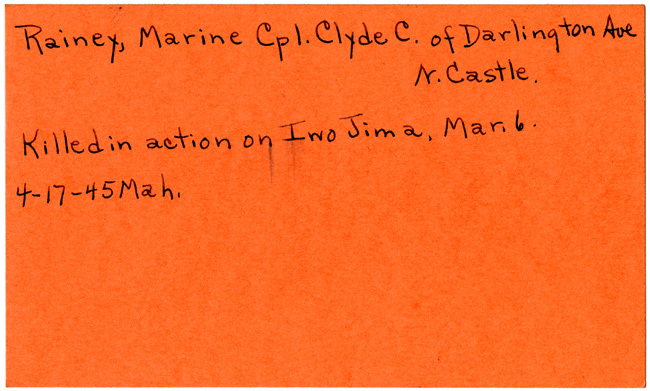 Rainey, Marine Cpl. Clyde C. of Darlington Ave
N. Castle.
Killed in action on Iwo Jima, Mar. 6.
4-17-45 Mah.